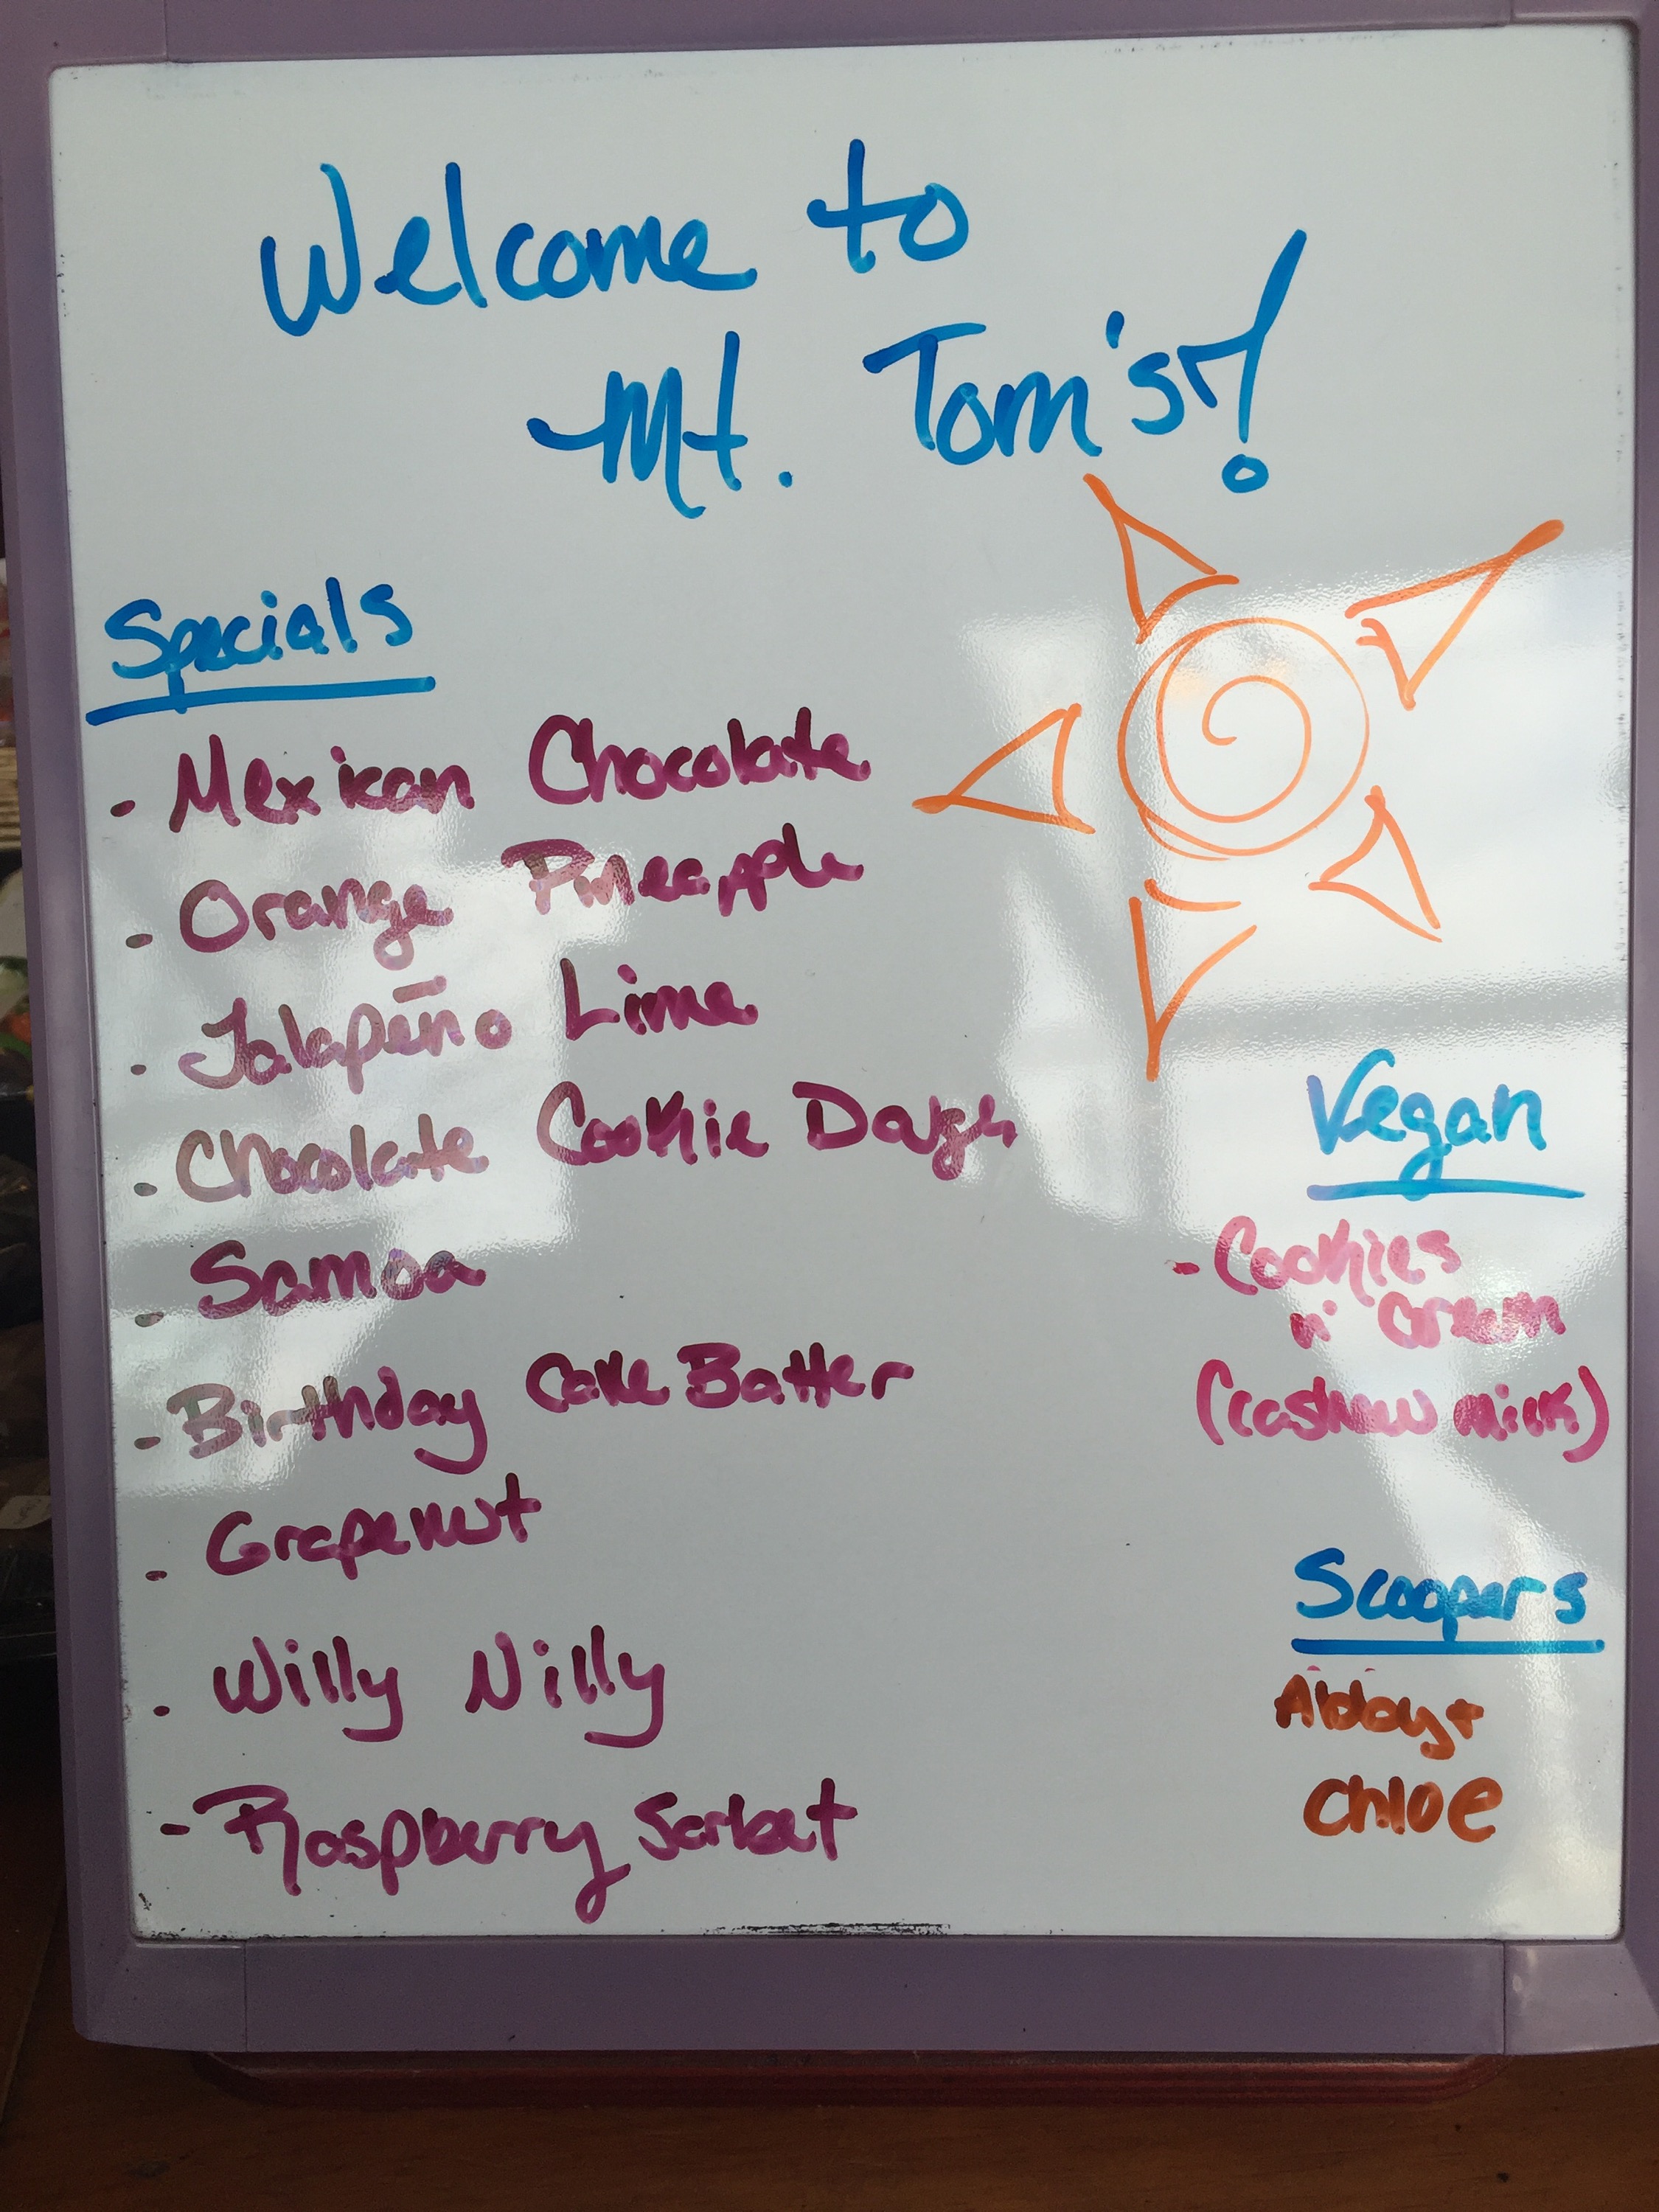 Welcome to
Mt. Tom's!
Specials
- Mexican Chocolate
- Orange Pineapple
- Jalapeño Lime
- Chocolate Cookie Dough
- Samoa
- Birthday Cake Batter
- Grapenut
- Willy Nilly
- Raspberry Sorbet
Vegan
- Cookies
n' Cream
(cashew milk)
Scoopers
Abby +
Chloe